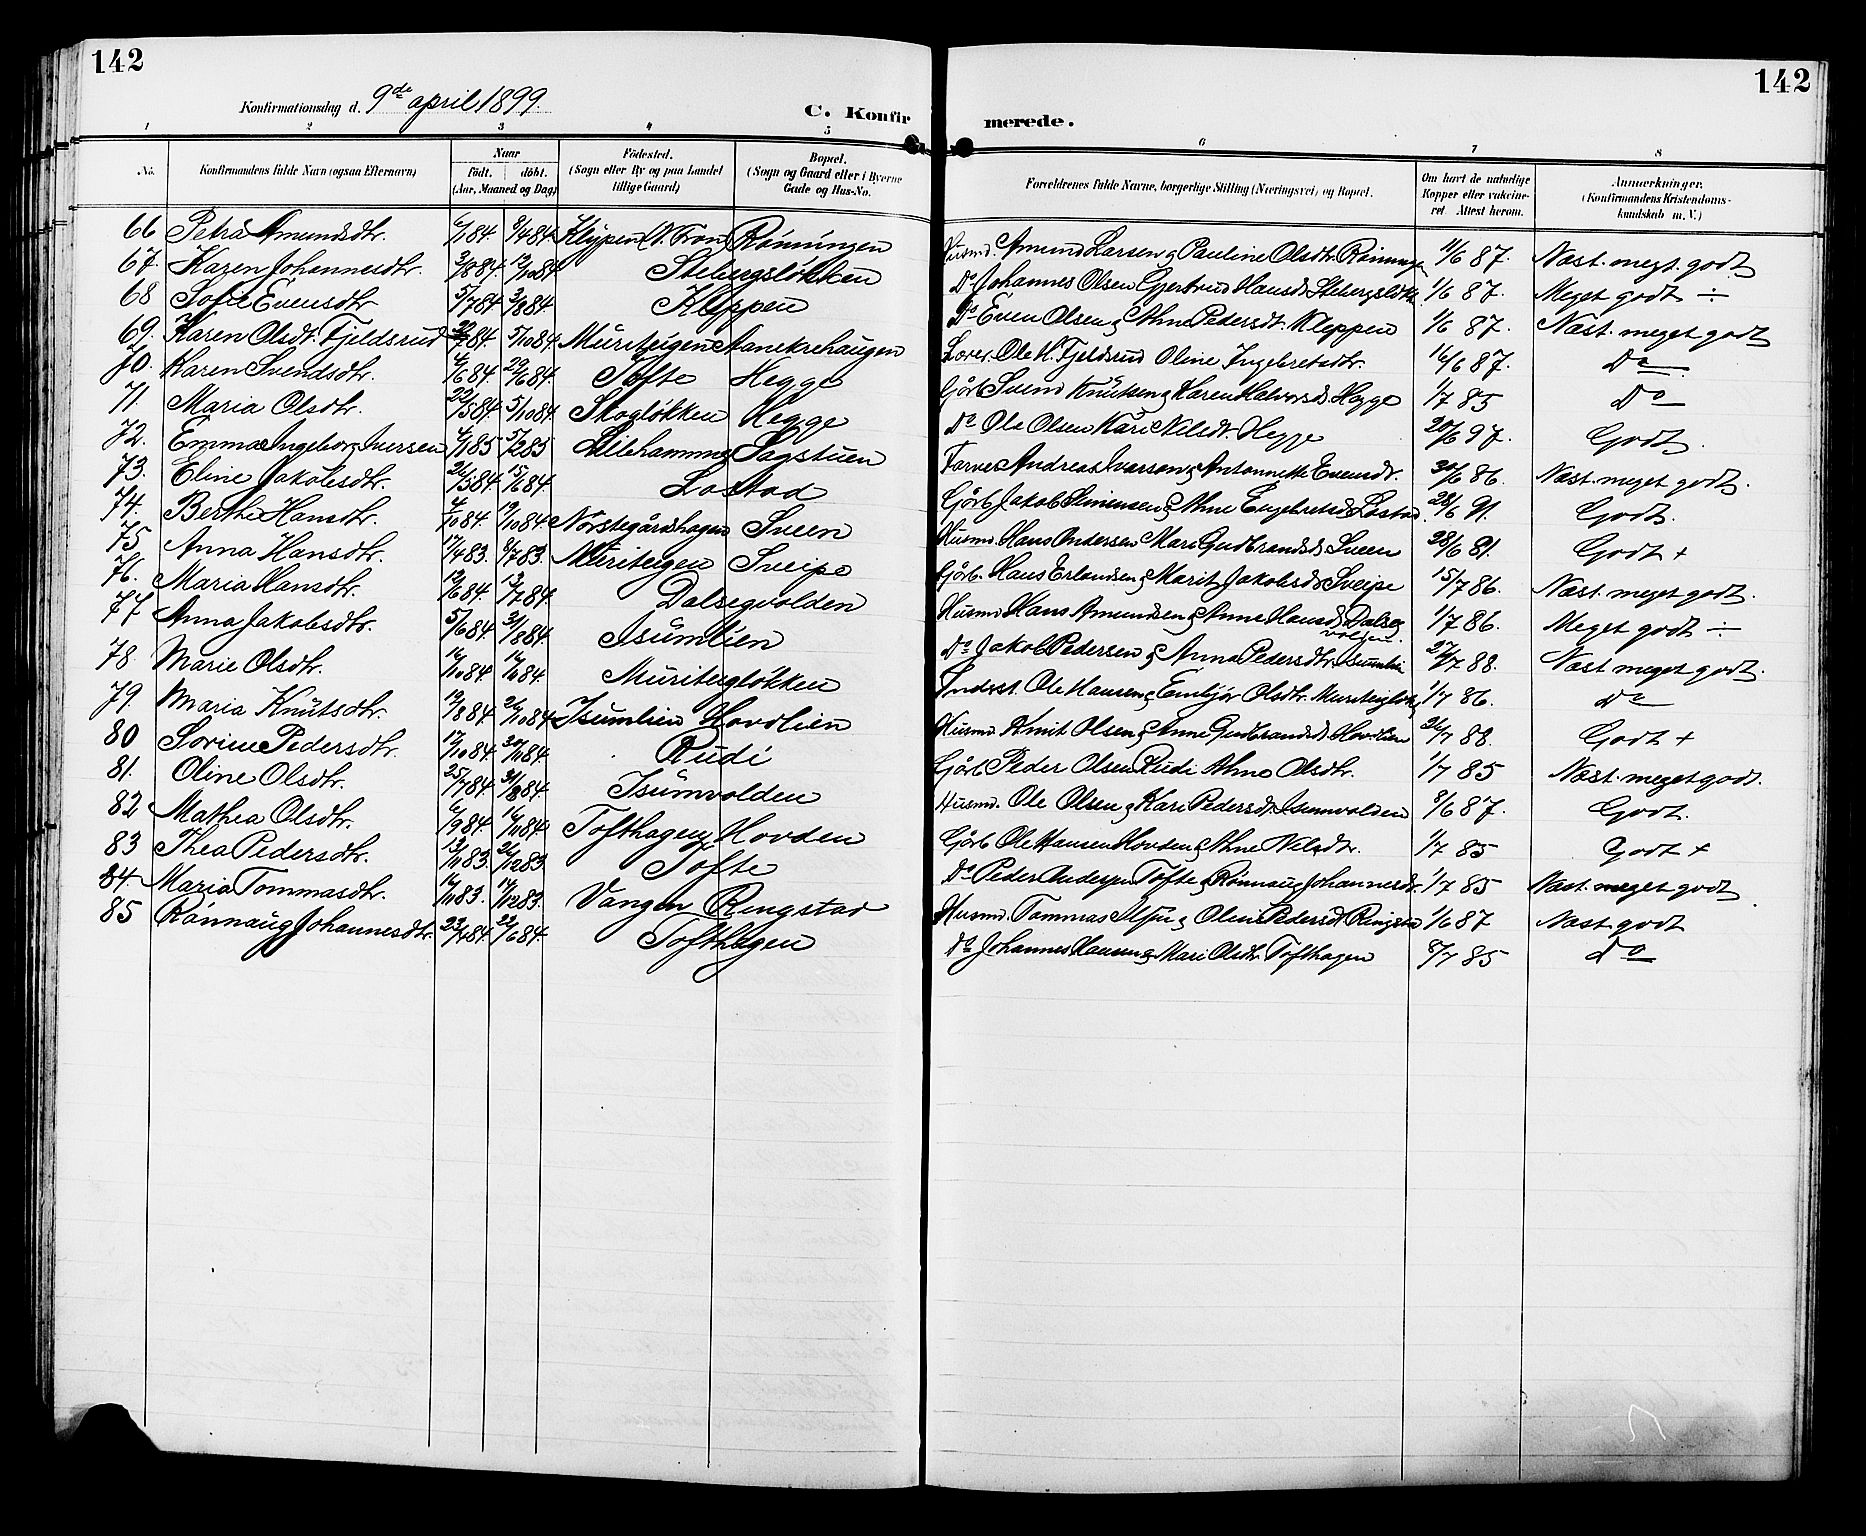 142
142
Konfirmationsdag d. 9de april 1899.
C. Konfir
merede.
1 2 3 4 5 6 7 8
No.
Konfirmandens fulde Navn (ogsaa Efternavn)
Naar
Født. døbt.
(Aar, Maaned og Dag)
Fødested.
(Sogn eller By og paa Landet
tillige Gaard)
Bopæl.
(Sogn og Gaard eller i Byerne
Gade og Hus-No.
Forældrenes fulde Navne, borgerlige Stilling (Næringsvei) og Bopæl.
Om havt de naturlige
Kopper eller vakcine-
ret Attest herom.
Anmærkninger.
(Konfirmandens Kristendoms-
kundskab m. V.)
66 Petra Amundsdtr. 6/1 84. 9/4 84 Kleppen N. Fron Rønningen Husmd. Amund Larsen og Pauline Olsdtr. Rønningen 11/6 87. Næst. megt. godt
67. Karen Johannesdtr. 3/8 84. 12/10 84 Stebergsløkken Do Johannes Olsen Gjertrud Hansd. Stebergsløkk. 1/6 87. Meget godt ÷
68 Sofie Evensdtr 5/7 84 3/8 84. Kleppen Do Even Olsen og Ane Pedersdt. Kleppen 1/6 87. Næst. meget godt
69. Karen Olsdt. Fjeldsrud 84. 5/10 84 Muriteigen Aanekrehaugen Ole H. Fjeldsrud Oline Ingebretsdtr. 16/6 87. Do
70. Karen Svendsdtr. 4/6 84. 29/6 84. Tofte Hegge Gårb. Svend Knutsen og Karen Halvorsd. Hegge 1/7 85 Do
71. Maria Olsdtr. 22/5 84 5/10 84 Skogløkken Hegge Do Ole Olsen Kari Nilsdt. Hegge 20/6 97. Godt.
72. Emma Ingeborg Iversen 4/1 85 5/2 85 Lilehammer Sagstuen Farver Andreas Iversen og Antonette Evensdr. 30/6 86. Næst. meget godt.
73. Eline Jakobsdtr. 24/5 84 15/6 84. Lostad Gårb Jakob Simensen og Ane Engebretsd. Løstad 28/6 91. Godt.
74. Berthe Hansdtr. 4/10 84. 19/10 84. Norstegårdshagen Sveen Husmd. Hans Andersen Mari Gudbrandsd. Sveen 28/6 91. Godt +
75 Anna Hansdtr. 17/4 83. 8/7 83. Muriteigen Sveipe Gårb. Hans Erlandsen og Marit Jakobsd. Sveipe 15/7 86. Næst. meget godt.
76. Maria Hansdtr. 12/6 84. 13/7 84. Dalsegvolden Husmd Hans Amundsen og Anne Hansd. Dalseg
volden. 1/7 86. Meget godt ÷
77 Anna Jakobsdtr. 5/6 84. 31/8 84. Isumlien Do Jakob Pedersen og Anna Pedersdtr. Isumlie 27/7 88. Næst meget godt.
78. Marie Olsdtr. 16/10 84 Muriteigløkken Inderst. Ole Hansen og Embjør Olsdtr. Muriteigløk 1/7 86. Do
79. Maria Knutsdtr. 19/8 84 26/10 84 Isumlien Hovdlien Husmd Knut Olsen og Anne Gudbrandsd. Hovdlien 26/7 88. Godt +
80 Sorine Pedersdtr. 17/10 84. 30/11 84. Rudi Gårb Peder Olsen Rudi Ane Olsdtr. 1/7 85 Næst. meget godt.
81. Oline Olsdtr. 25/7 84. 31/8 84. Isumvolden Husmd. Ole Olsen og Kari Pedersdt. Isumvolden 8/6 87. Godt.
82 Mathea Olsdtr. 6/9 84. 84. Tofthagen Hovden Gårb Ole Hansen Hovden og Ane Nilsdtr. 1/7 85 Godt +
83 Thea Pedersdtr. 13/11 83. 26/12 83. Tofte Do Peder Andersen Tofte og Rønnaug Johannesdr. 1/7 85 Næst. meget godt
84. Maria Tommasdtr. 16/11 83. 16/12 83. Vangen Ringstad Husmd. Tommas og Oline Pedersdt. Ringstad 1/6 87 Næst godt
85 Rønnaug Johannesdtr. 23/4 84. 22/6 84. Tofthagen Do Johannes Hansen og Mari Olsdtr. Tofthagen 8/7 85 Do